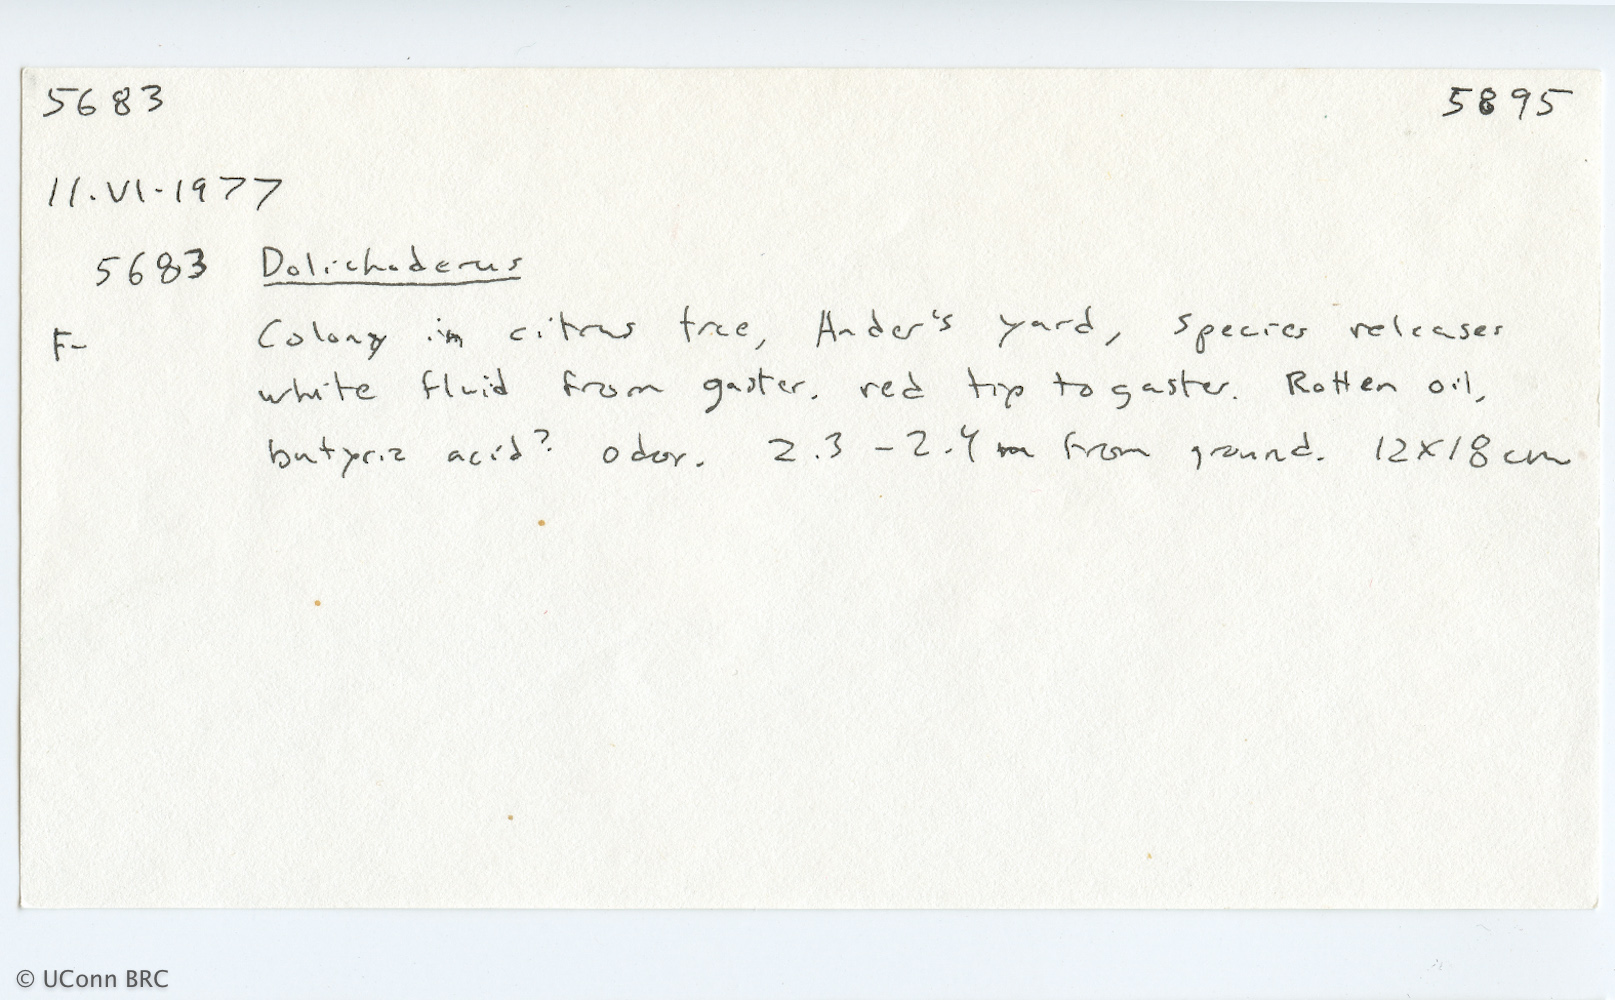 5683 5895
11.VI.1977
5683 Dolichoderus
F- Colony in citrus tree, Ander's yard, species releases
white fluid from gaster. red tip to gaster. Rotten oil,
butyric acid? odor. 2.3 - 2.4 m from ground. 12x18 cm
© UConn BRC